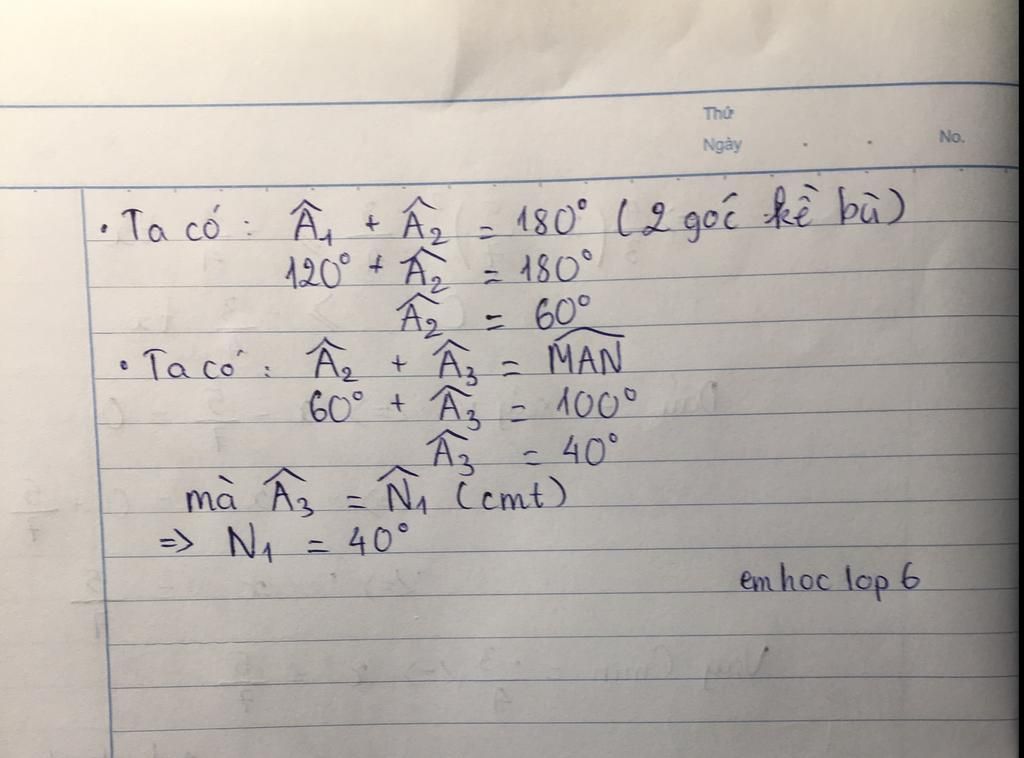 Thứ
Ngày . . No.
• Ta có : Â₁ + Â₂ = 180° (2 góc kề bù)
120° + Â₂ = 180°
Â₂ = 60°
• Ta có : Â₂ + Â₃ = \widehat{MAN}
60° + Â₃ = 100°
Â₃ = 40°
mà Â₃ = N̂₁ (cmt)
=> N₁ = 40°
em hoc lop 6